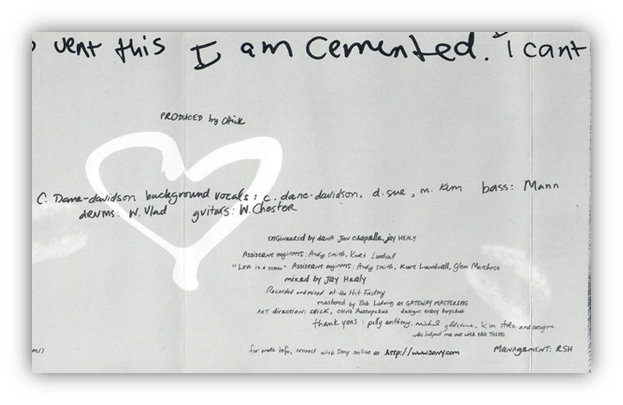 vent this I am cemented. i cant
PRODUCED by Chick
C. Dane-davidson background vocals: c. dane-davidson, d. sue, m. kim bass: Mann
drums: W. Vlad guitars: W. Chester
ENGINEERED by dana jon chappelle, jay HEALY
Assistant engineers: Andy Smith, Kurt Lundvall
Assistant engineers: Andy Smith, Kurt Lundvall, Glen Marchese
mixed by Jay Healy
Recorded and mixed at the Hit Factory
mastered by Bob Ludwig at GATEWAY MASTERING
ART direction: CHICK, design:
thank yous: polly anthony, michael goldstone, kim and everyone
who helped me out with this THING
for more info, connect with Sony online at http://www.sony.com MANAGEMENT: RSH